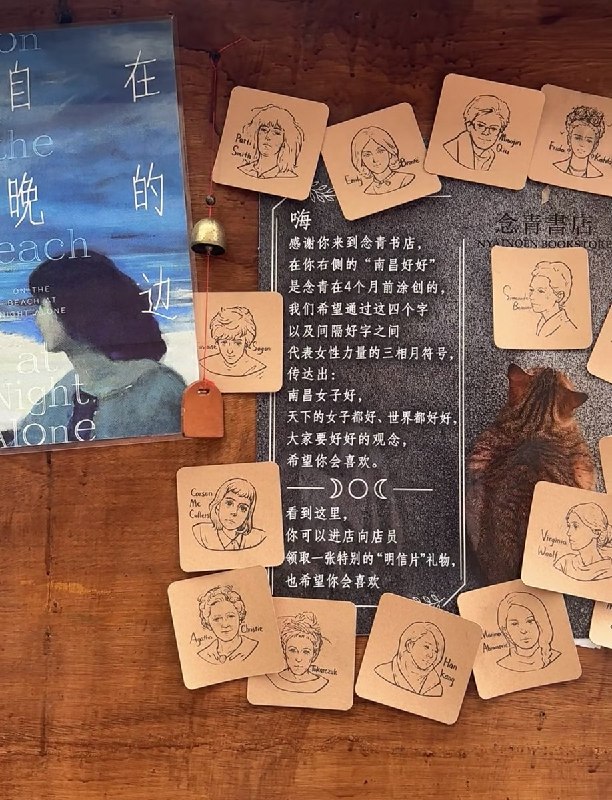 在
自
的
晚
边
on
the
each
ON THE
BEACH AT
NIGHT ALONE
at
Night
Alone
Patti
Smith
Emily
Bronte
Frida
Kahlo
念青書店
嗨
感谢你来到念青书店，
在你右侧的“南昌好好”
是念青在4个月前涂创的，
我们希望通过这四个字
以及间隔好字之间
代表女性力量的三相月符号，
传达出：
南昌女子好，
天下的女子都好、世界都好好，
大家要好好的观念，
希望你会喜欢。
看到这里，
你可以进店向店员
领取一张特别的“明信片”礼物，
也希望你会喜欢
Sagan
Carson
Mc
Cullers
Virginia
Woolf
Agatha
Christie
Tokarczuk
Han
Kang